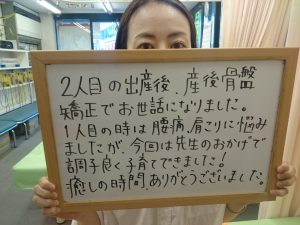 2人目の出産後、産後骨盤
矯正でお世話になりました。
1人目の時は腰痛、肩こりに悩み
ましたが、今回は先生のおかげで
調子良く子育てできました!
癒しの時間ありがとうございました。